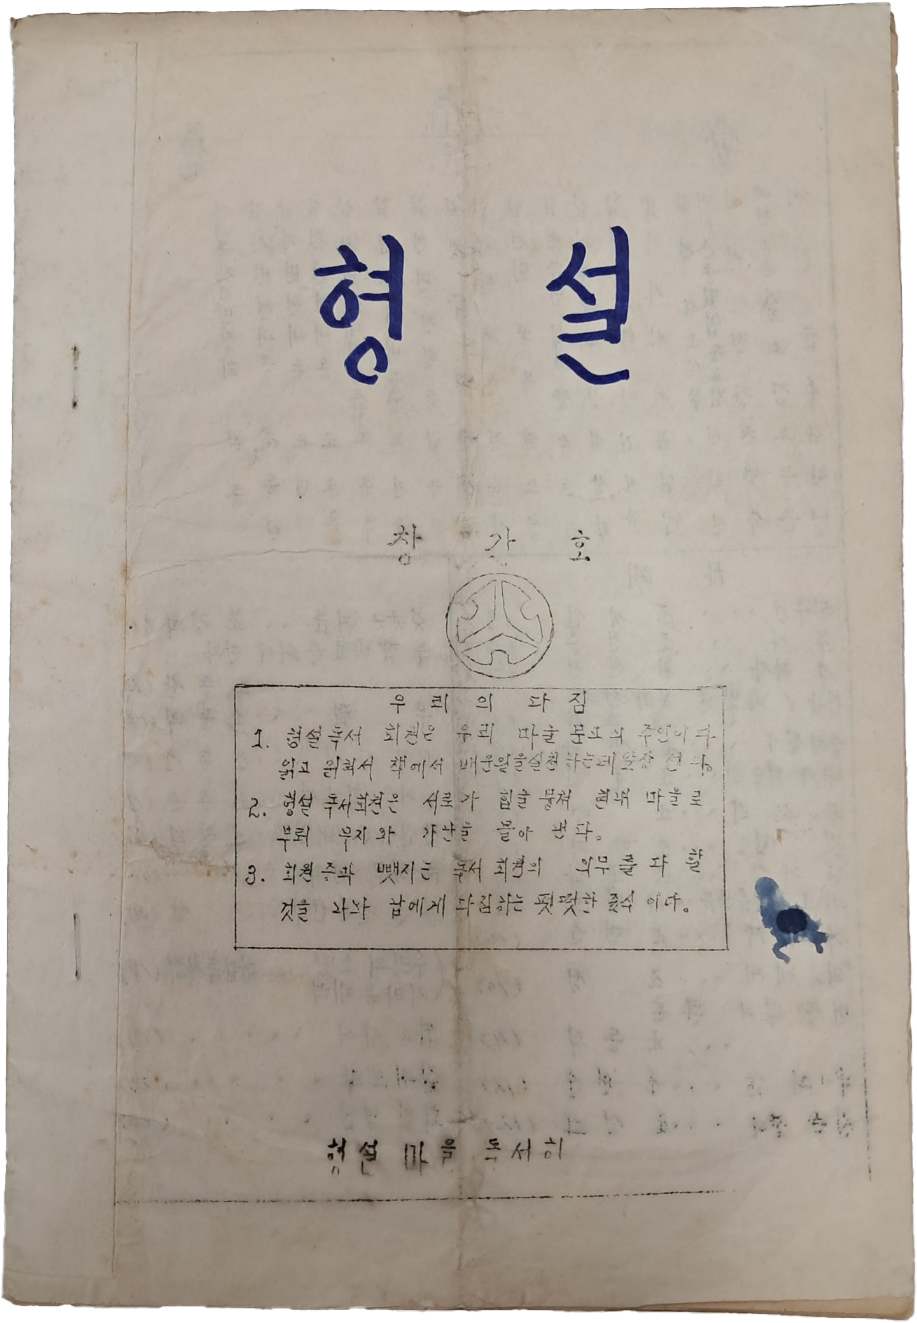 형 설
창 간 호
우 리 의 다 짐
1. 형설독서 회원은 우리 마을 문고의 주인이다
읽고 읽혀서 책에서 배운일을실천하는데앞장 선다.
2. 형설 독서회원은 서로가 힘을 뭉쳐 마을로
부터 무지와 가난을 몰아 낸다.
3. 회원증과 뺏지는 독서 회원의 의무를 다 할
것을 나와 남에게 다짐하는 떳떳한 표식 이다.
형설 마을 독서회